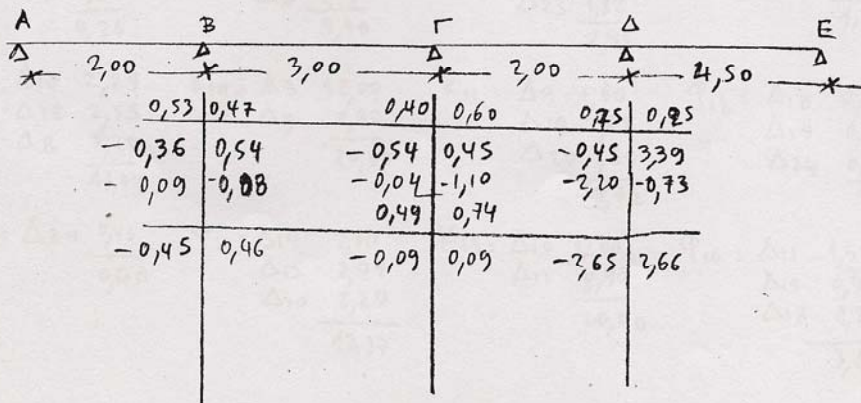 Α Β Γ Δ Ε
2,00 3,00 2,00 4,50
0,53 0,47 0,40 0,60 0,75 0,25
-0,36 0,54 -0,54 0,45 -0,45 3,39
-0,09 -0,08 -0,04 -1,10 -2,20 -0,73
0,49 0,74
-0,45 0,46 -0,09 0,09 -2,65 2,66